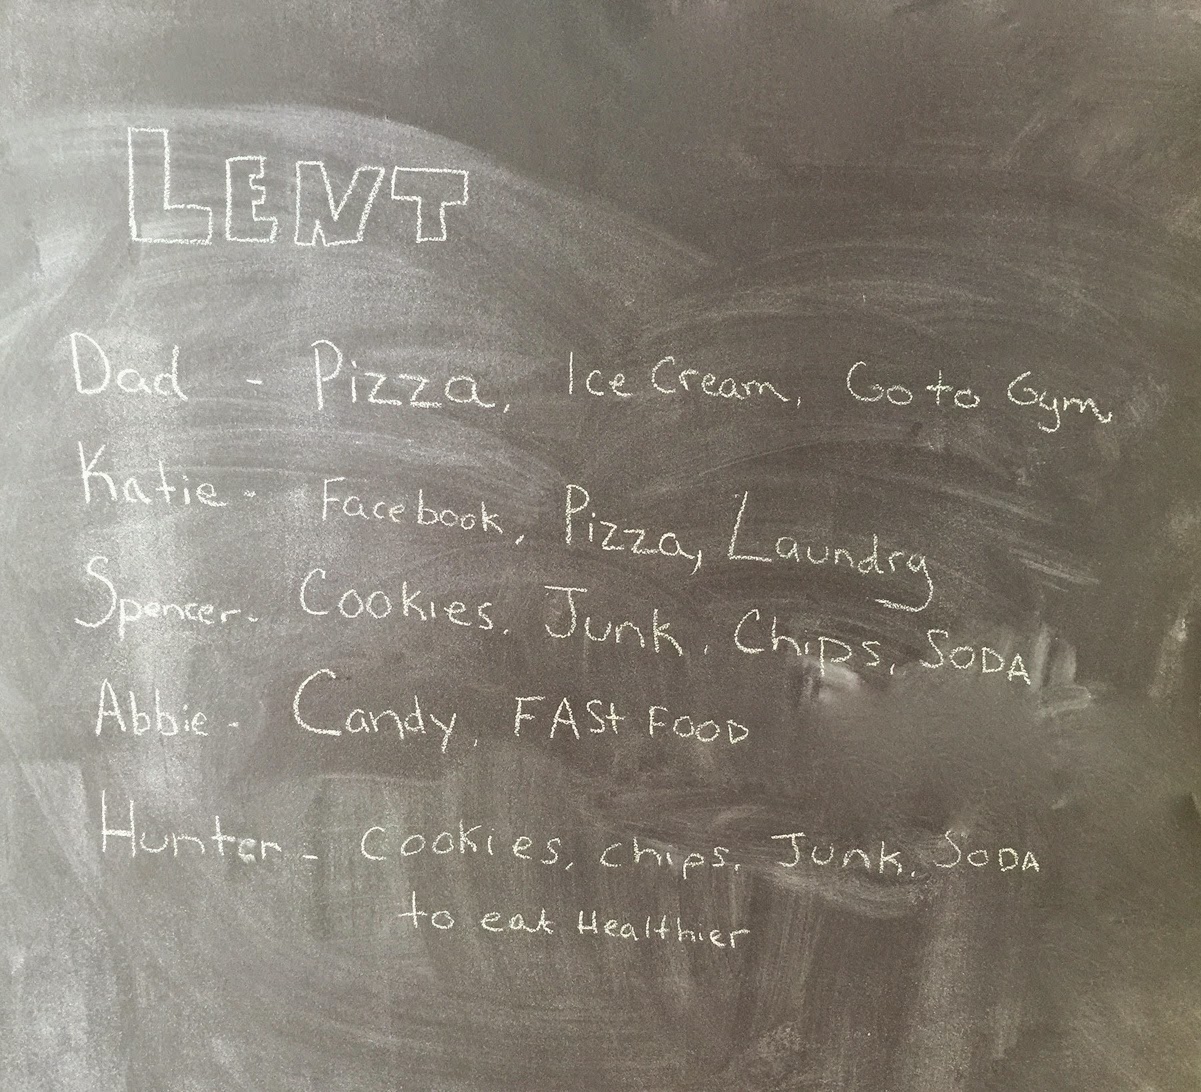 LENT
Dad - Pizza, Ice Cream, Go to Gym
Katie - Facebook, Pizza, Laundry
Spencer - Cookies, Junk, Chips, SODA
Abbie - Candy, FASt FOOD
Hunter - Cookies, chips, Junk, SODA
to eat Healthier